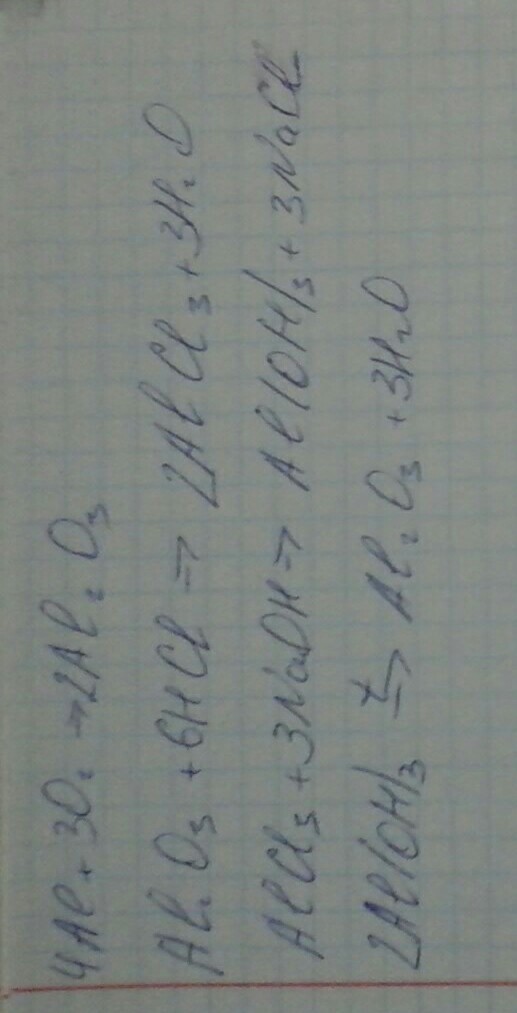 4Al + 3O₂ → 2Al₂O₃
Al₂O₃ + 6HCl => 2AlCl₃ + 3H₂O
AlCl₃ + 3NaOH => Al(OH)₃ + 3NaCl
2Al(OH)₃ =t> Al₂O₃ + 3H₂O